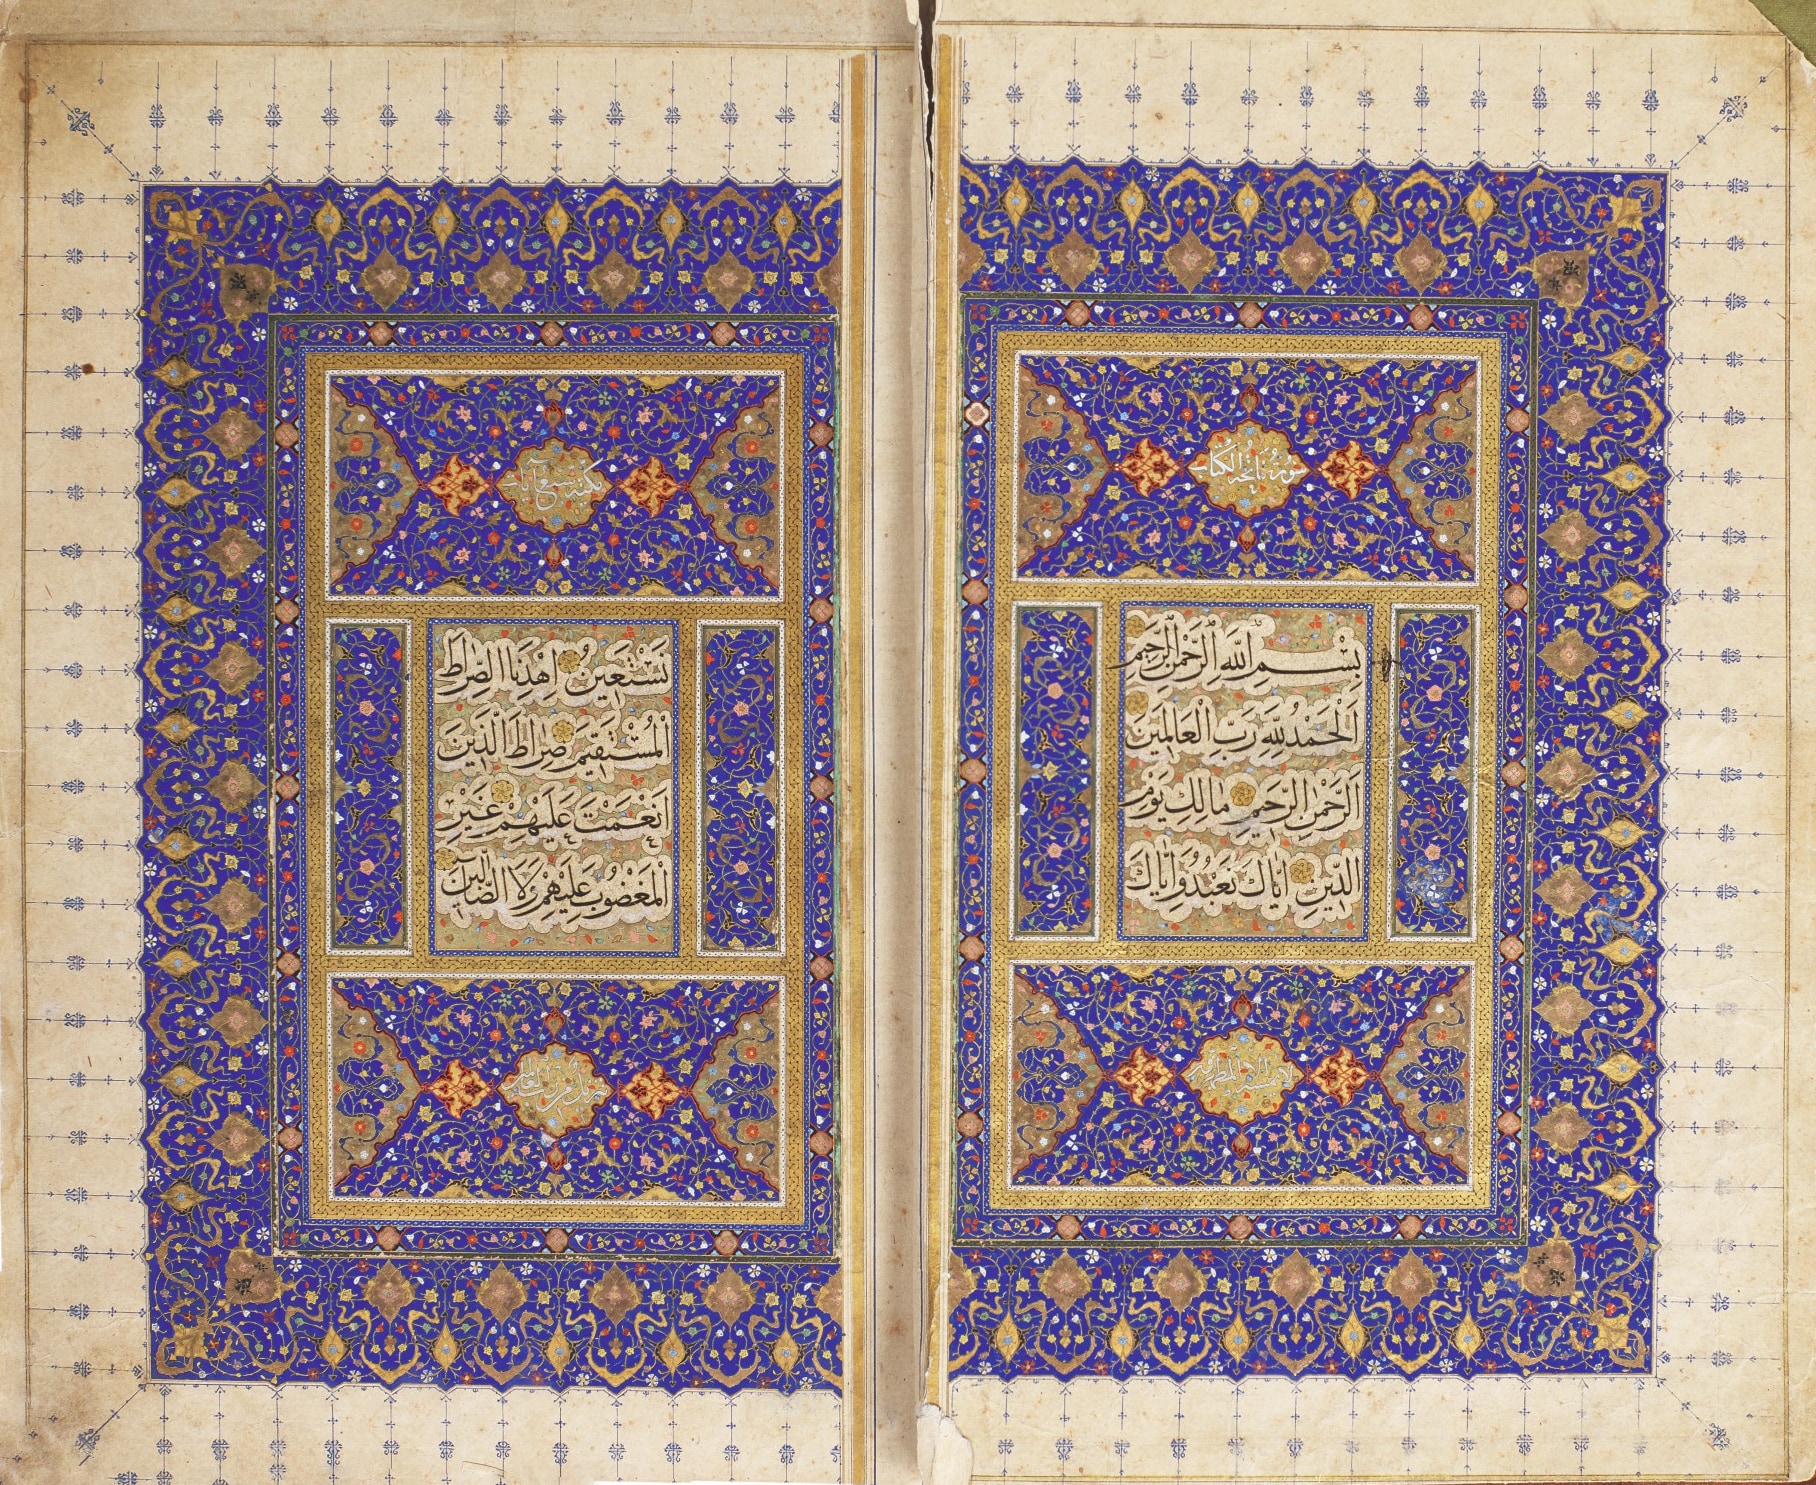 سورة فاتحة الكتاب
بِسْمِ اللّٰهِ الرَّحْمٰنِ الرَّحِيمِ
اَلْحَمْدُ لِلّٰهِ رَبِّ الْعَالَمِينَ
اَلرَّحْمٰنِ الرَّحِيمِ مَالِكِ يَوْمِ
الدِّينِ اِيَّاكَ نَعْبُدُ وَاِيَّاكَ
لا يمسه الا المطهرون
سبع آيات
نَسْتَعِينُ اِهْدِنَا الصِّرَاطَ
الْمُسْتَقِيمَ صِرَاطَ الَّذِينَ
اَنْعَمْتَ عَلَيْهِمْ غَيْرِ
الْمَغْضُوبِ عَلَيْهِمْ وَلَا الضَّالِّينَ
تنزيل من رب العالمين